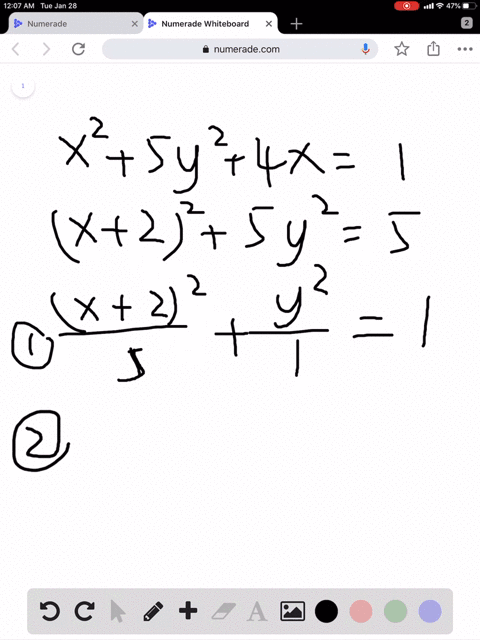 12:07 AM Tue Jan 28 47%
Numerade × Numerade Whiteboard × + 2
numerade.com
1
x² + 5y² + 4x = 1
(x+2)² + 5y² = 5
① (x+2)²/5 + y²/1 = 1
②
A